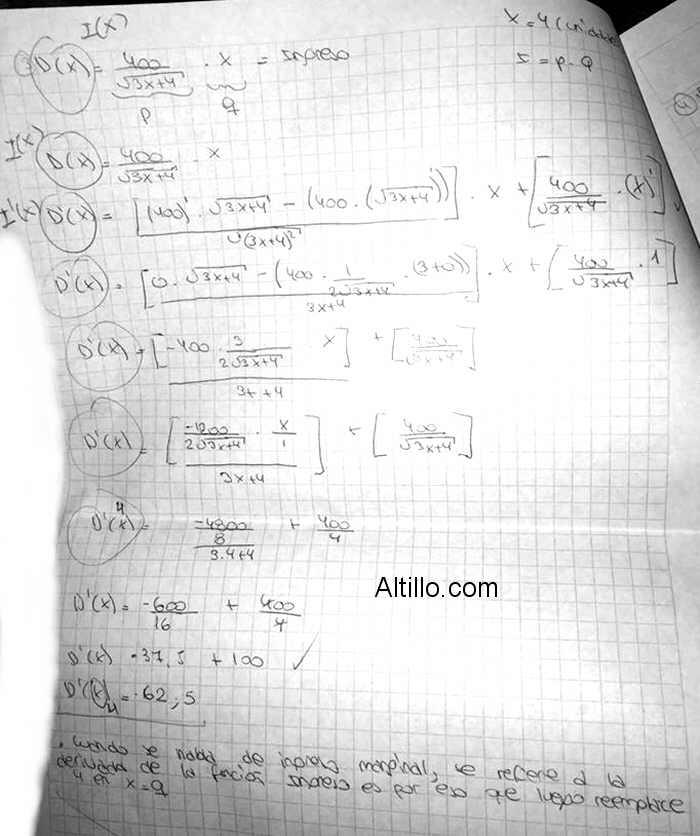 I(x)
x = 4 (unidades
③ D(x) = 400/√3x+4 · x = Ingreso
I = p · q
p q
I(x) D(x) = 400/√3x+4 · x
I'(x) D'(x) = [(400)' · √3x+4 - (400 · (√3x+4)')]/√(3x+4)² · x + [400/√3x+4 · (x)']
D'(x) = [0 · √3x+4 - (400 · 1/2√3x+4 · (3+0))]/3x+4 · x + [400/√3x+4 · 1]
D'(x) = [-400 · 3/2√3x+4 · x]/3x+4 + [400/√3x+4]
D'(x) = [-1200/2√3x+4 · x/1]/3x+4 + [400/√3x+4]
D'(x) 4 = -4800/8/3.4+4 + 400/4
Altillo.com
D'(x) = -600/16 + 400/4
D'(x) = -37,5 + 100 ✓
D'(x)4 = 62,5
. Cuando se habla de ingreso marginal, se refiere a la
derivada de la función Ingreso es por eso que luego reemplace
4 en x=q